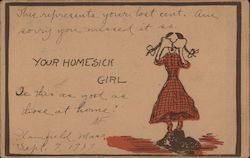 This represents your lost cent. Am
sorry you missed it so.
YOUR HOMESICK
GIRL
Is this as good as
those at home?
Mass.
Sept. 7, 1907